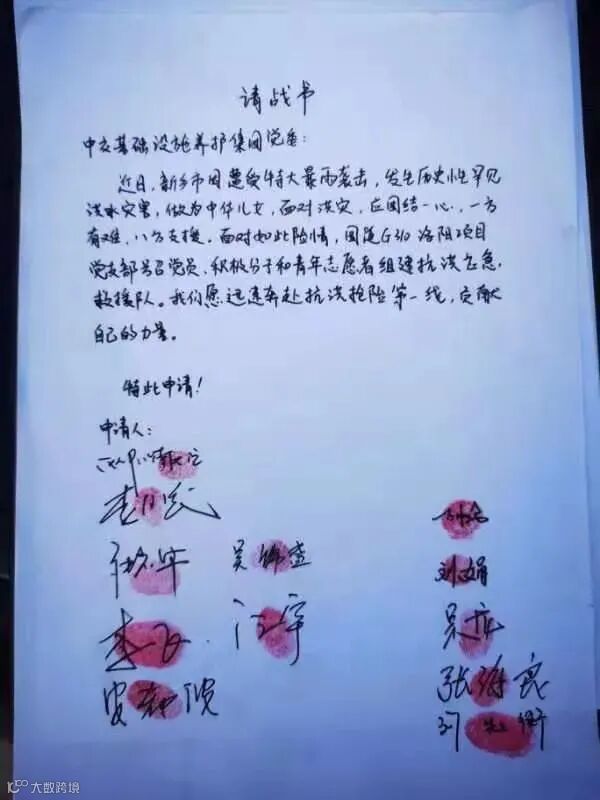 请战书
中交基础设施养护集团党委:
近日,新乡市因遭受特大暴雨袭击,发生历史性罕见
洪水灾害,做为中华儿女,面对洪灾,应团结一心,一方
有难,八方支援。面对如此险情,国道G310洛阳项目
党支部号召党员,积极分子和青年志愿者组建抗洪应急
救援队。我们愿迅速奔赴抗洪抢险第一线,贡献
自己的力量。
特此申请!
申请人:
吴锦盛
刘娟
李飞
汪宇
吴
张海良
大数跨境